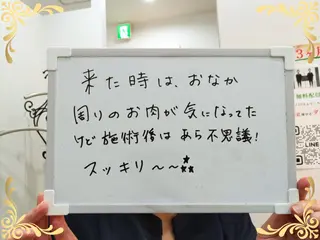 来た時は、おなか
周りのお肉が気になってた
けど施術後は あら不思議!
スッキリ〜〜
LINE